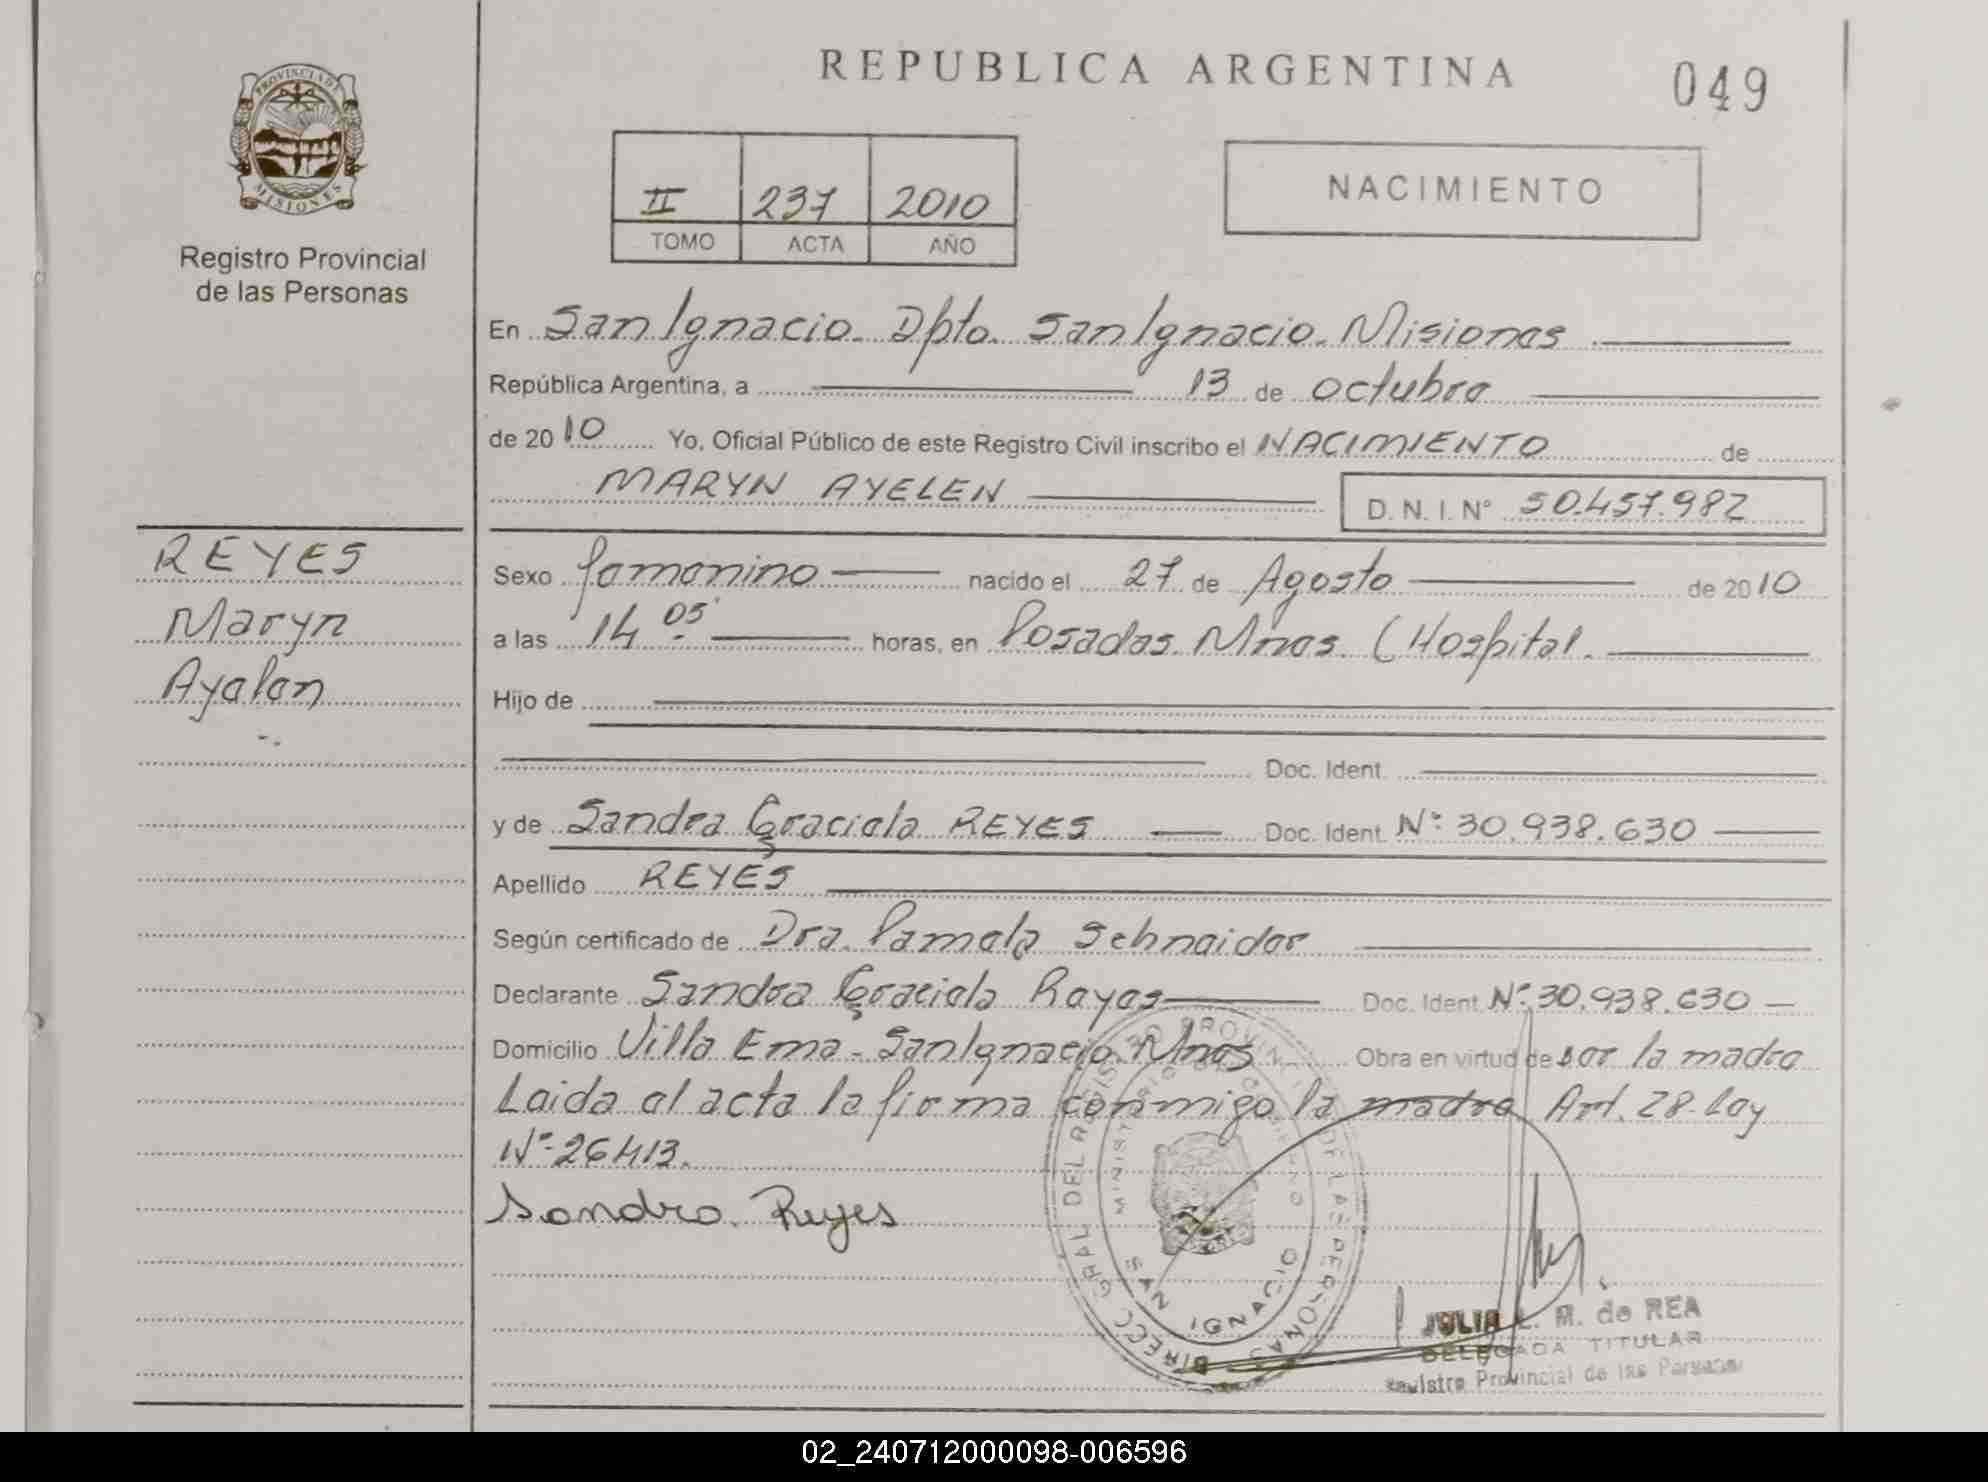 REPUBLICA ARGENTINA
049
PROVINCIA DE
MISIONES
Registro Provincial
de las Personas
II 237 2010
TOMO ACTA AÑO
NACIMIENTO
En San Ignacio. Dpto. San Ignacio. Misiones
República Argentina, a 13 de octubre
de 2010 Yo, Oficial Público de este Registro Civil inscribo el NACIMIENTO de
MARYN AYELEN D.N.I. N° 50.457.982
REYES
Maryn
Ayelen
Sexo femenino nacido el 27 de Agosto de 2010
a las 14 05' horas, en Posadas. Mnes. (Hospital.
Hijo de
Doc. Ident.
y de Sandra Graciela REYES Doc. Ident. N°: 30.938.630
Apellido REYES
Según certificado de Dra. Pamela Schneider
Declarante Sandra Graciela Reyes Doc. Ident. N°: 30.938.630
Domicilio Villa Ema - San Ignacio. Mnes Obra en virtud de ser la madre
Leida el acta la firma conmigo la madre Art. 28. Ley
N° 26413.
Sandra Reyes
DIRECC GRAL DEL REGISTRO PROVINCIAL DE LAS PERSONAS
MINISTERIO DE GOBIERNO
SAN IGNACIO
JULIA L. M. de REA
DELEGADA TITULAR
Registro Provincial de las Personas
02_240712000098-006596